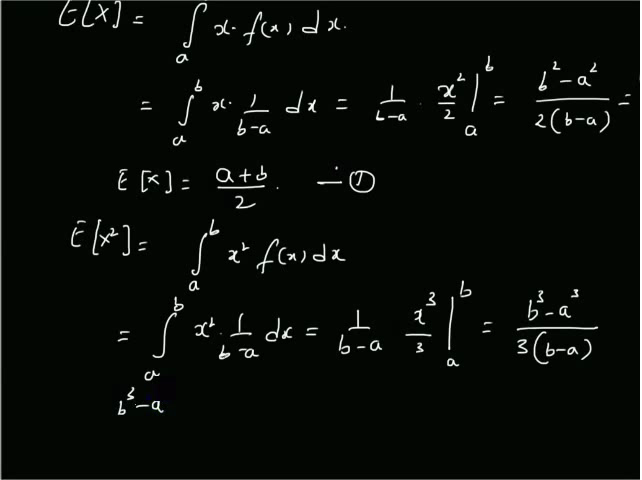 E[X] = ∫ₐ x· f(x) dx.
= ∫ₐᵇ x· 1/(b-a) dx = 1/(b-a) · x²/2 |ₐᵇ = (b²-a²)/(2(b-a)) =
E[X] = (a+b)/2 . — ①
E[X²] = ∫ₐᵇ x² f(x) dx
= ∫ₐᵇ x²· 1/(b-a) dx = 1/(b-a) x³/3 |ₐᵇ = (b³-a³)/(3(b-a))
b³-a